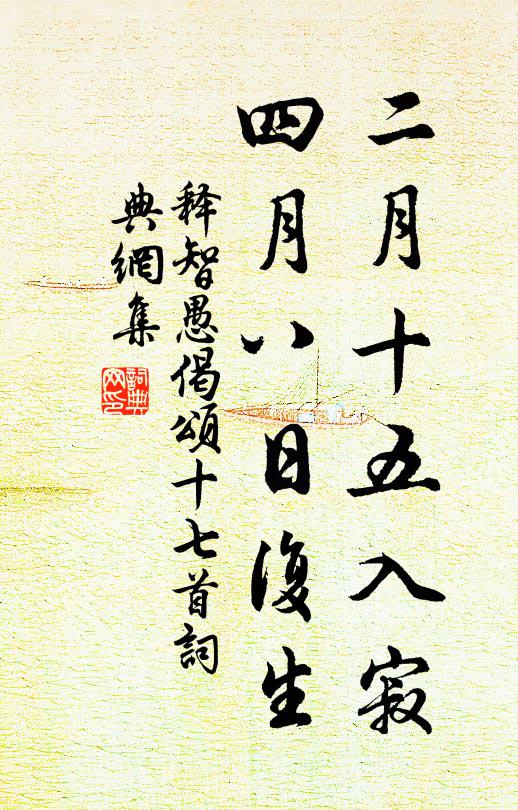 二月十五入寂
四月八日復生
释智愚偈頌十七首詞
典網集
詞典
网印